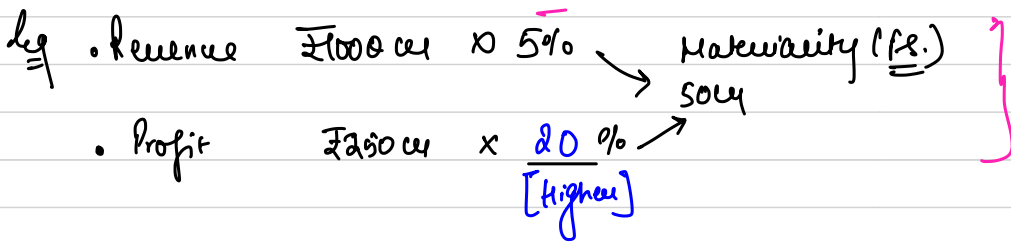 Eg • Revenue ₹1000 cr × 5% Materiality (f.s.)
50 cr
• Profit ₹250 cr × 20 %
[Higher]